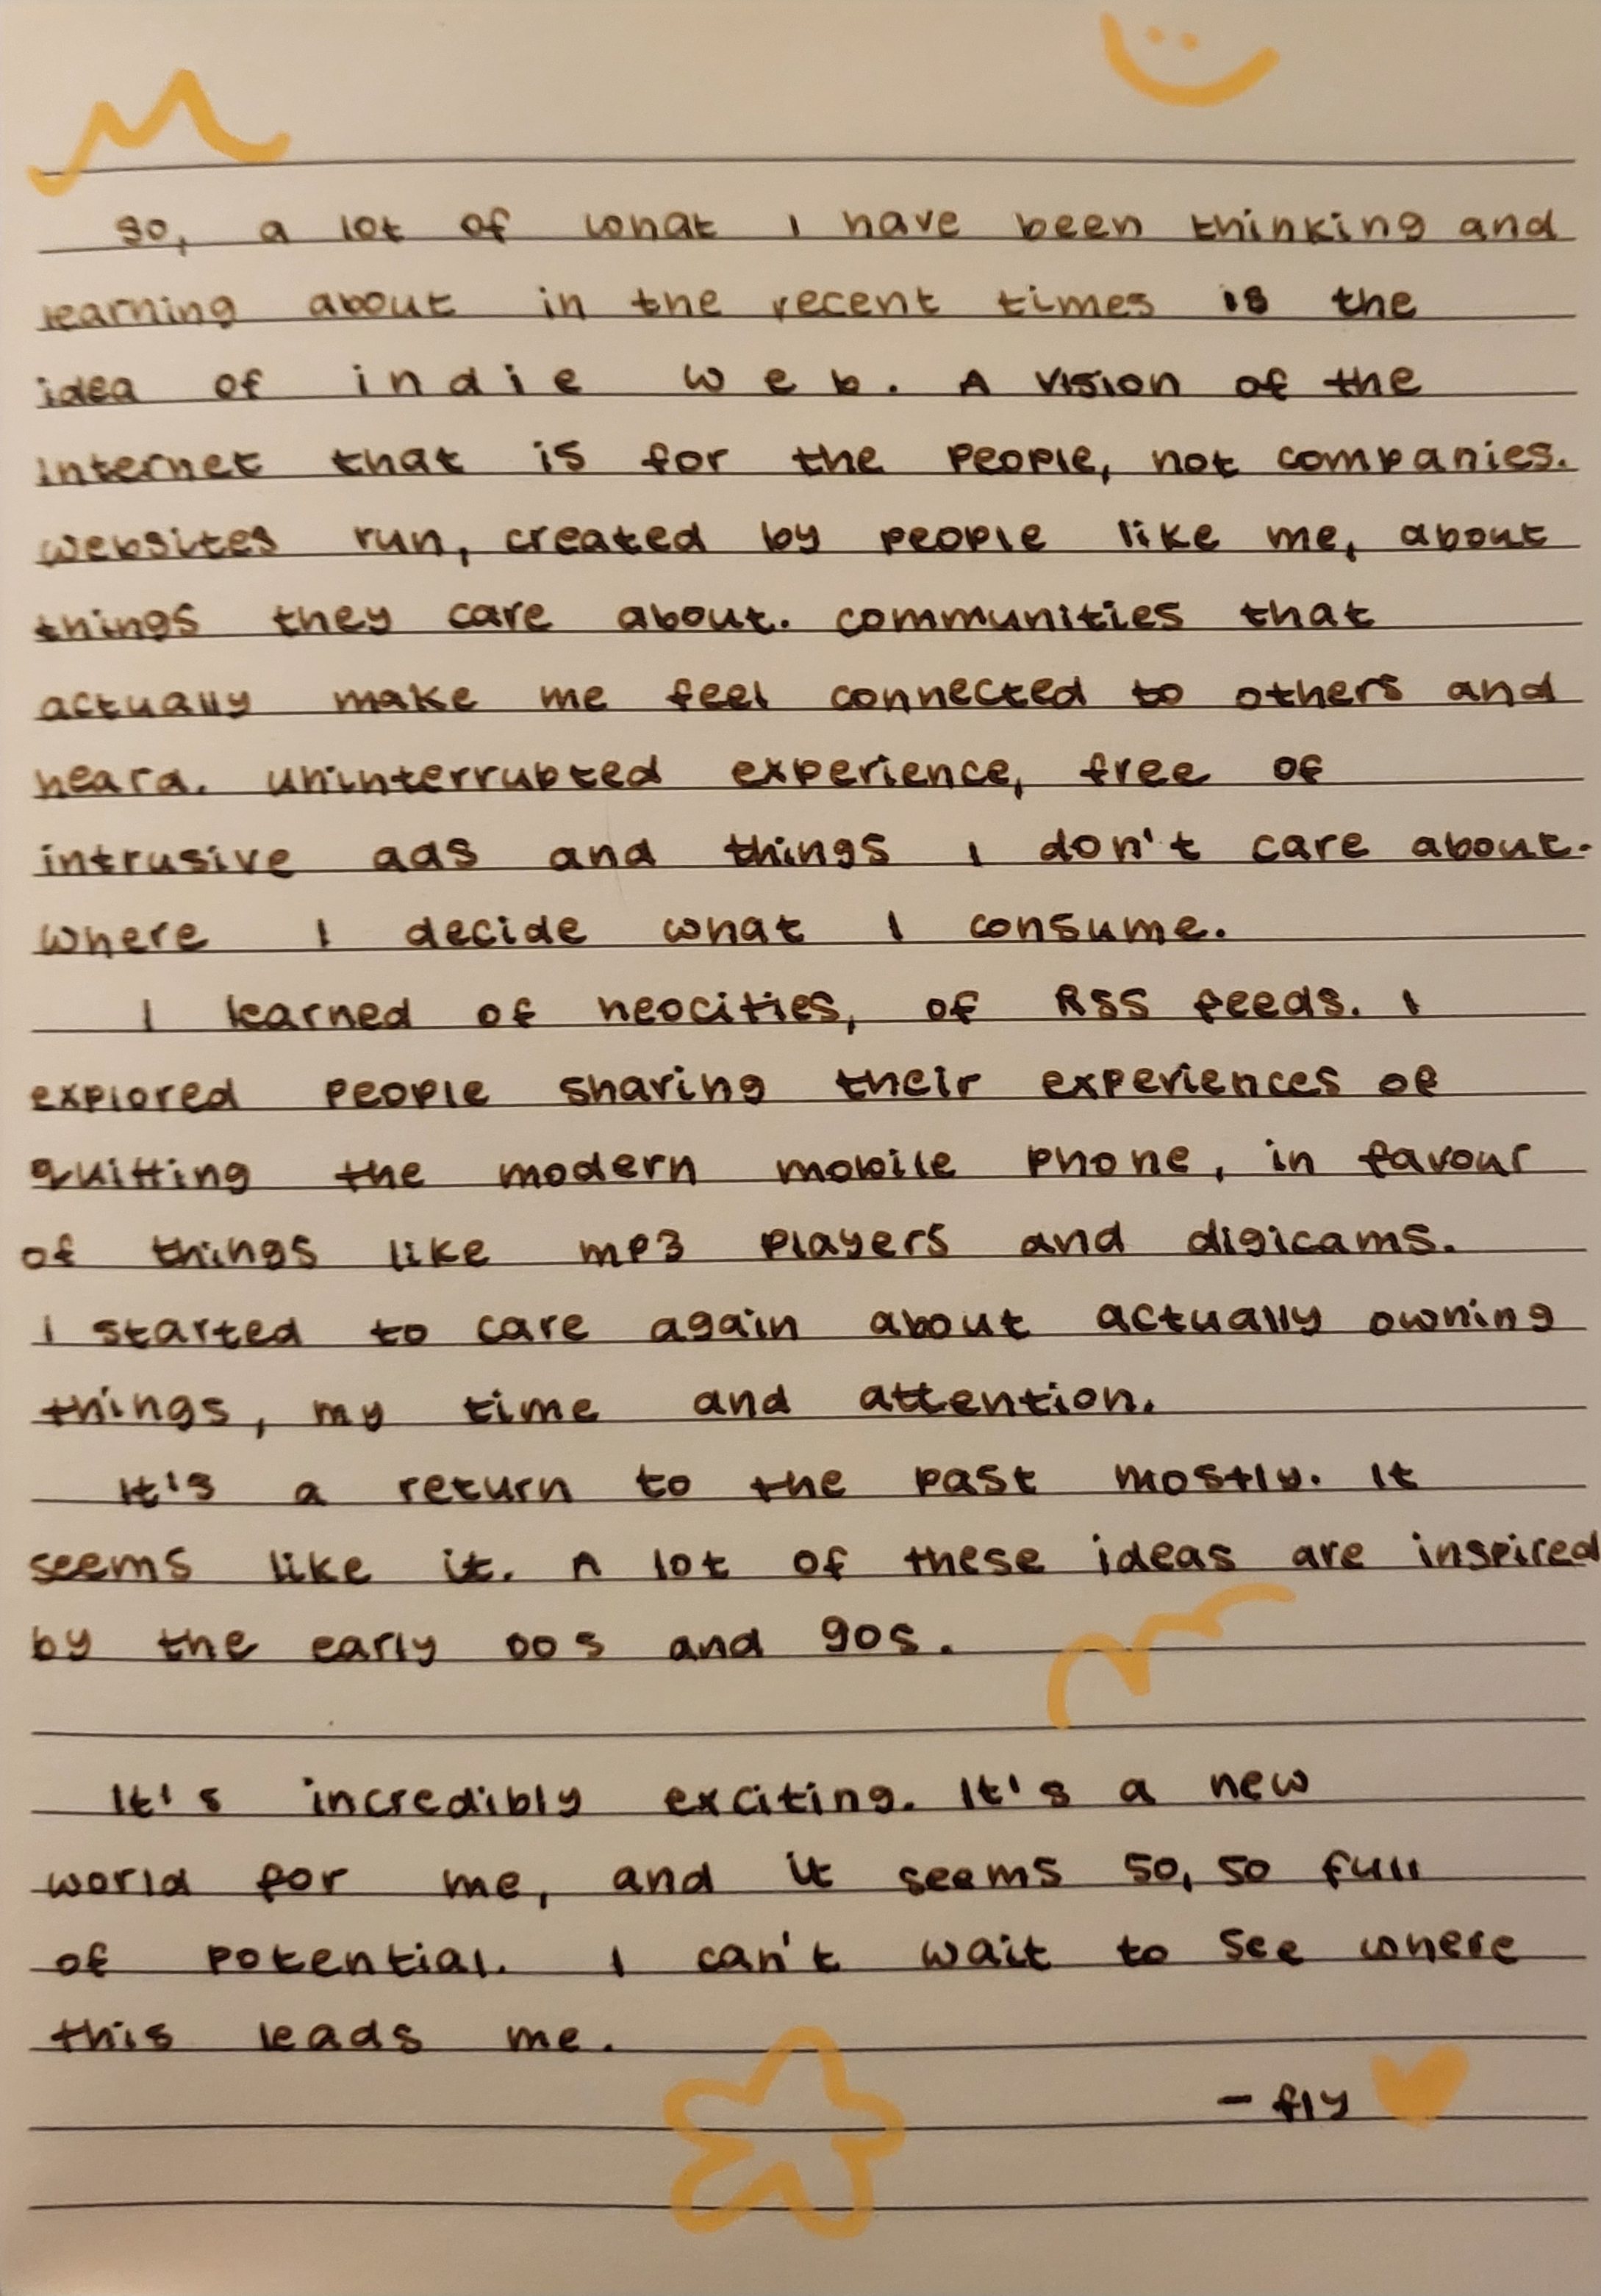 So, a lot of what I have been thinking and
learning about in the recent times is the
idea of indie web. A vision of the
internet that is for the people, not companies.
websites run, created by people like me, about
things they care about. communities that
actually make me feel connected to others and
heard. uninterrupted experience, free of
intrusive ads and things I don't care about.
where I decide what I consume.
I learned of neocities, of RSS feeds. I
explored people sharing their experiences of
quitting the modern mobile phone, in favour
of things like mp3 players and digicams.
I started to care again about actually owning
things, my time and attention.
It's a return to the past mostly. It
seems like it. A lot of these ideas are inspired
by the early 00s and 90s.
It's incredibly exciting. It's a new
world for me, and it seems so, so full
of potential. I can't wait to see where
this leads me.
- fly